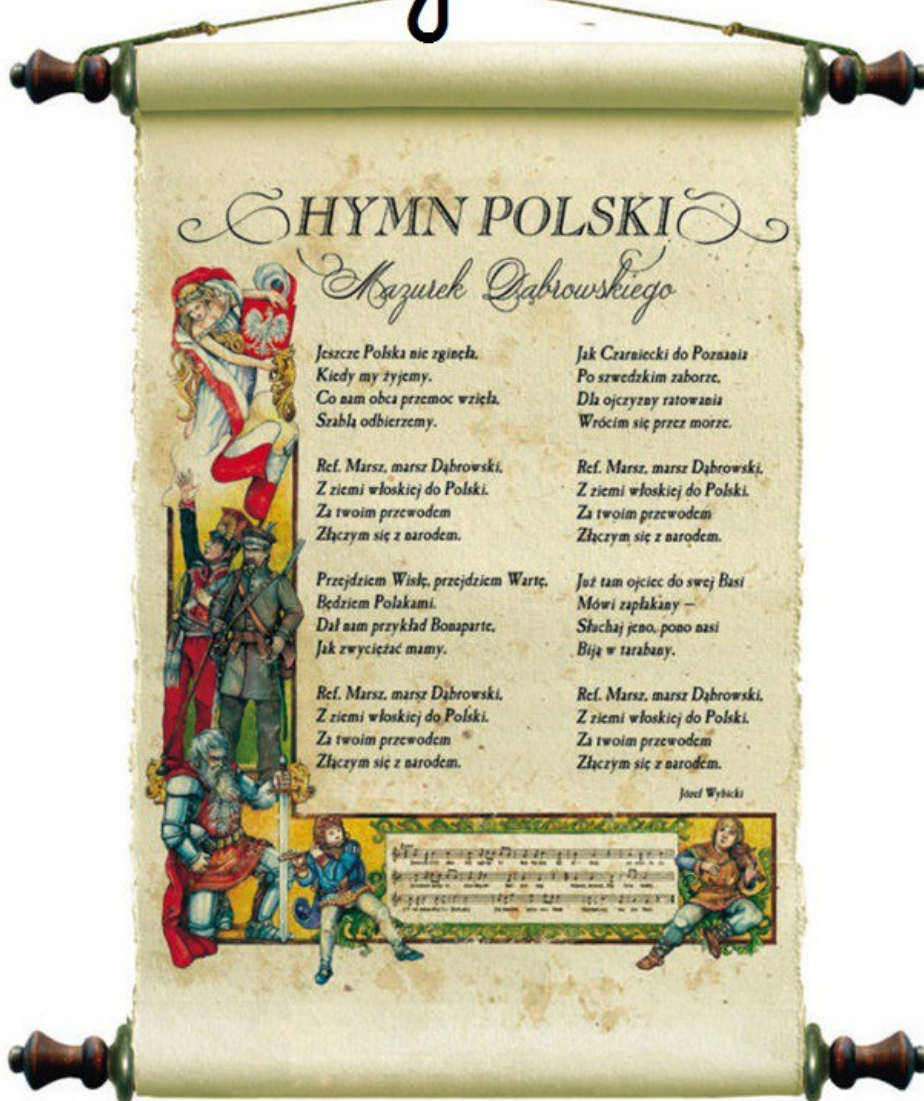 HYMN POLSKI
Mazurek Dąbrowskiego
Jeszcze Polska nie zginęła,
Kiedy my żyjemy.
Co nam obca przemoc wzięła,
Szablą odbierzemy.
Ref. Marsz, marsz Dąbrowski,
Z ziemi włoskiej do Polski.
Za twoim przewodem
Złączym się z narodem.
Przejdziem Wisłę, przejdziem Wartę,
Będziem Polakami.
Dał nam przykład Bonaparte,
Jak zwyciężać mamy.
Ref. Marsz, marsz Dąbrowski,
Z ziemi włoskiej do Polski.
Za twoim przewodem
Złączym się z narodem.
Jak Czarniecki do Poznania
Po szwedzkim zaborze,
Dla ojczyzny ratowania
Wrócim się przez morze.
Ref. Marsz, marsz Dąbrowski,
Z ziemi włoskiej do Polski.
Za twoim przewodem
Złączym się z narodem.
Już tam ojciec do swej Basi
Mówi zapłakany –
Słuchaj jeno, pono nasi
Biją w tarabany.
Ref. Marsz, marsz Dąbrowski,
Z ziemi włoskiej do Polski.
Za twoim przewodem
Złączym się z narodem.
Józef Wybicki